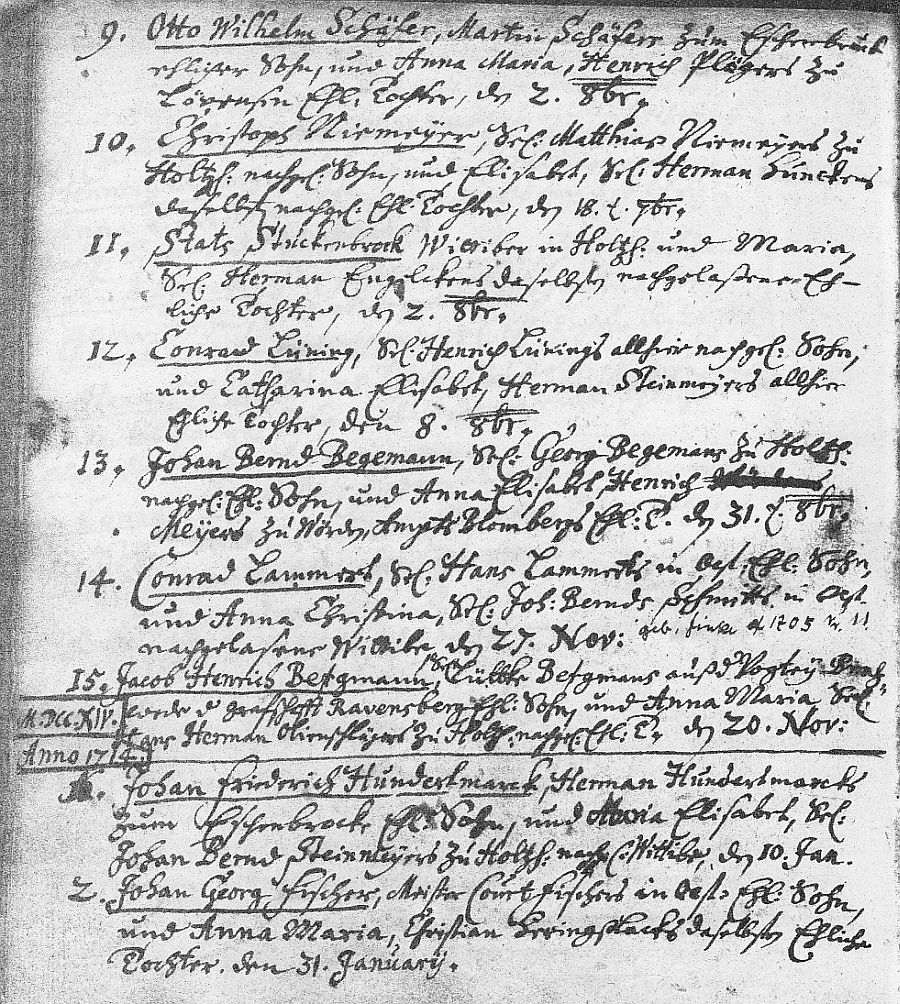 9. Otto Wilhelm Schäfer, Martin Schäfers zum Eschenbruck
ehliger Sohn, und Anna Maria, Henrich Plögers zu
Ehl. Tochter, den 2. 8br.
10. Christoph Niemeyer, Sel. Matthias Niemeyers zu
Holtzh: nachgel. Sohn, und Elisabet, Sel. Herman Lünckens
daselbsten nachgel. Ehl. Tochter, den 18. 7br.
11. Stats Stuckenbrock Wittiber in Holtzh: und Maria,
Sel. Herman Engelckens daselbsten nachgelaßener Eh-
liche Tochter, den 2. 8br.
12. Conrad Lüning, Sel. Henrich Lünings allhier nachgel: Sohn,
und Catharina Elisabet, Herman Steinmeyers allhier
Ehliche Tochter, den 8. 8br.
13. Johan Bernd Begemann, Sel: Georg Begemans zu Holtzh:
nachgel: Ehl: Sohn, und Anna Elisabet, Henrich
Meyers zu Wörden, Ampts Blombergs Ehl: T. den 31. 8br.
14. Conrad Lammert, Sel. Hans Lammerts in Oest: Ehl: Sohn,
und Anna Christina, Sel: Joh: Bernds Schmitts in Oest.
nachgelasene Wittibe, den 27. Nov: 1705 N. 11
15. Jacob Henrich Bergmann, Sel. Lüdtke Bergmans außd Vogtey
M.DCC.XIV. Graffschafft Ravensberg Ehl: Sohn, und Anna Maria, Sel.
Anno 1714. Hans Herman zu Holtzh: nachgel: Ehl: T. den 20. Nov:
1. Johan Friederich Hundertmarck, Herman Hundertmarcks
zum Eschenbrocke Ehl. Sohn, und Maria Elisabet, Sel:
Johan Bernd Steinmeyers zu Holtzh: nachgel: Wittibe, den 10. Jan.
2. Johan Georg Fischer, Meister Court Fischers in Oest. Ehl: Sohn,
und Anna Maria, Christian daselbsten Ehliche
Tochter, den 31. January.